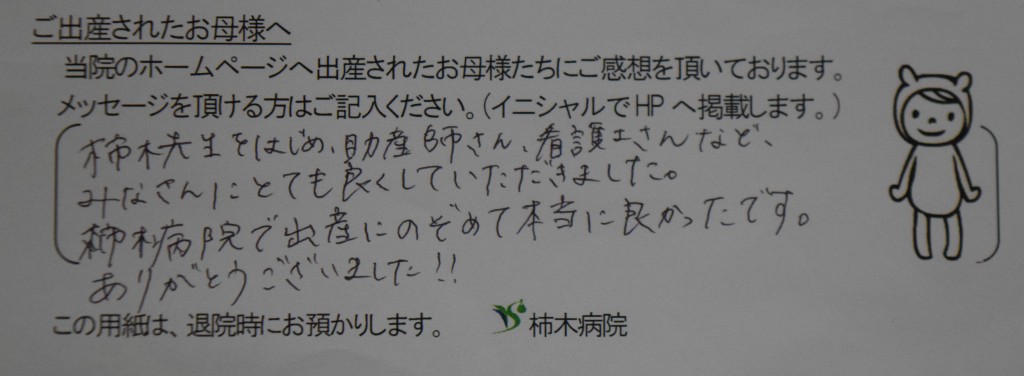 ご出産されたお母様へ
当院のホームページへ出産されたお母様たちにご感想を頂いております。
メッセージを頂ける方はご記入ください。(イニシャルでHPへ掲載します。)
柿木先生をはじめ、助産師さん、看護士さんなど、
みなさんにとても良くしていただきました。
柿木病院で出産にのぞめて本当に良かったです。
ありがとうございました!!
この用紙は、退院時にお預かりします。
柿木病院